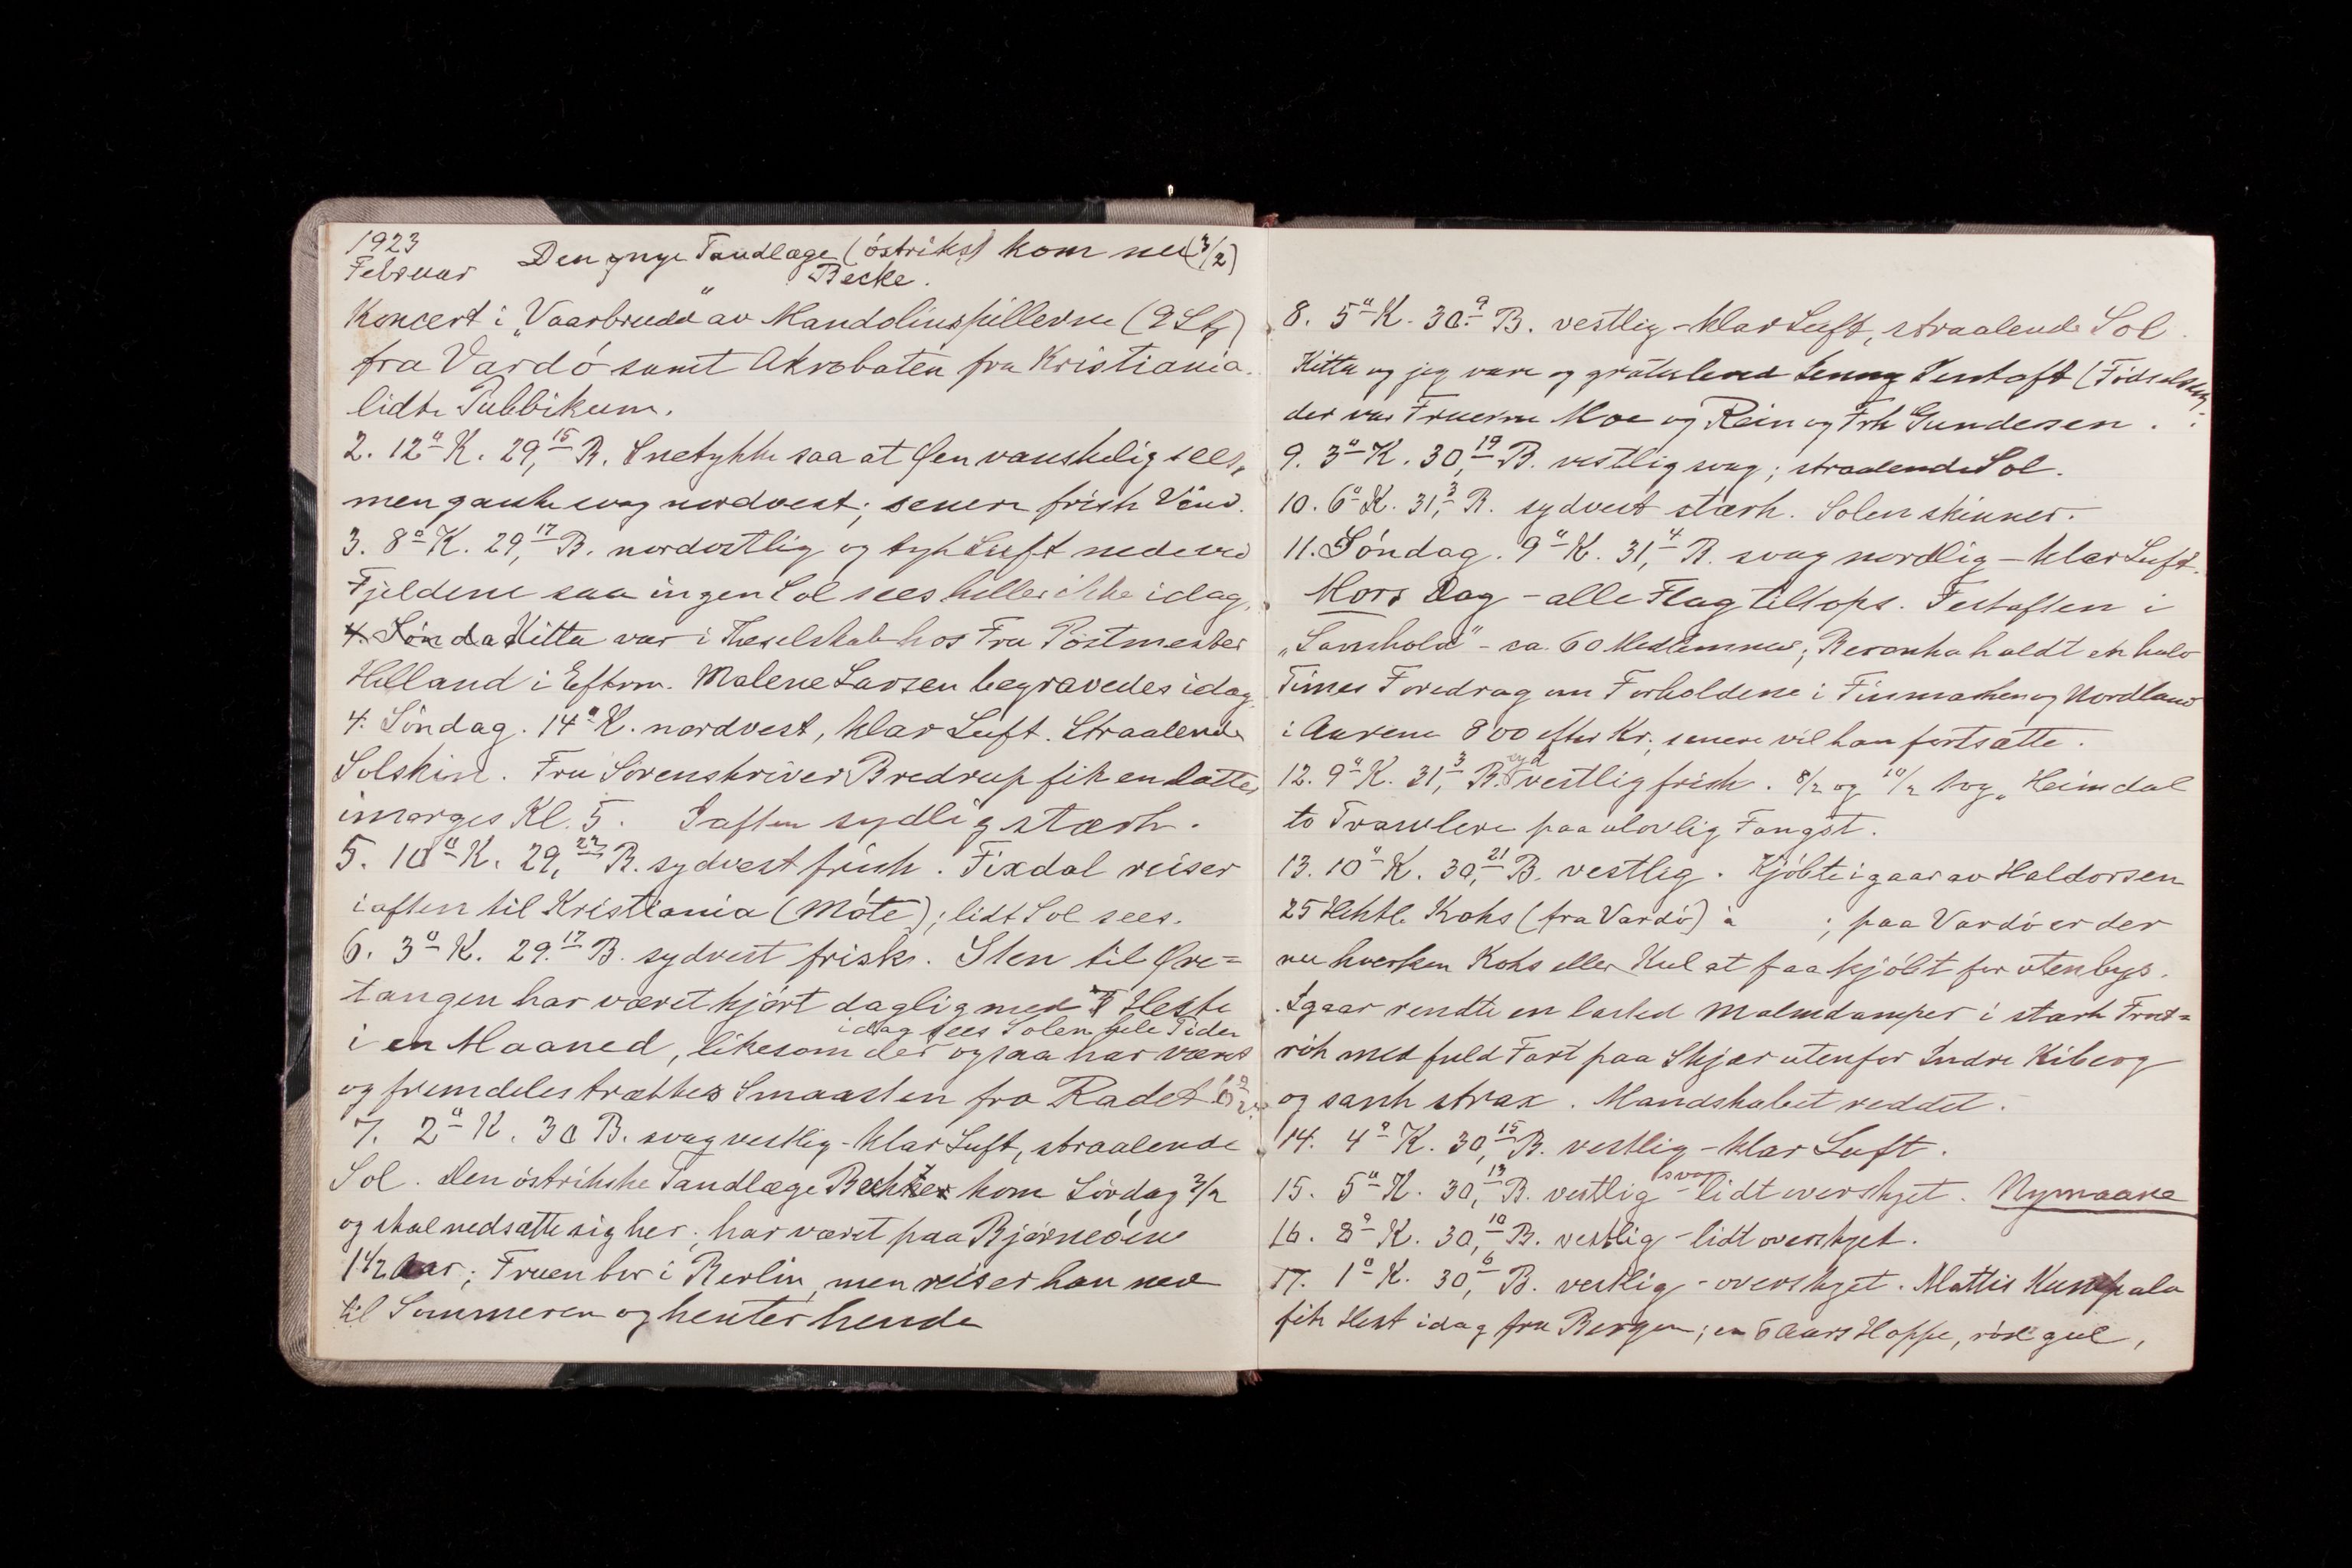 1923
Februar
Den nye Tandlæge (østriksk) kom nu (3/2)
Becke.
Koncert i "Vaarbrudd" av Mandolinspillerne (2 Stk)
fra Vardö samt Akrobaten fra Kristiania.
lidte Pubbikum.
2. 12° K. 29,15 B. Snetykke saa at Øen vanskelig sees,
men ganske svag nordvest; senere frisk Vind.
3. 8° K. 29,17 B. nordostlig og tyk Luft nede ved
Fjeldene saa ingen Sol sees heller ikke idag.
4. Sönda Kitta var i Theselskab hos Fru Postmester
Helland i Efterm. Malene Larsen begravedes idag
4. Söndag. 14° K. nordvest, klar Luft. Straalende
Solskin. Fru Sorenskriver Bredrup fik en datter
imorges Kl. 5. Iaften sydlig stærk.
5. 10° K. 29,22 B. sydvest frisk. Fixdal reiser
iaften til Kristiania (Möte); lidt Sol sees.
6. 3° K. 29.17 B. sydvest frisk. Sten til Øre=
tangen har været kjört daglig med Heste
idag sees Solen hele Tiden
i en Maaned, likesom der ogsaa har været
og fremdeles trækkes Smaasten fra Radet
7. 2° K. 30 B. svag vestlig - klar Luft, straalende
Sol. Den östrikske Tandlæge Becke kom Lördag 3/2
og skal nedsætte sig her; har været paa Bjørneöene
1 1/2 Aar; Fruen bor i Berlin, men reiser han ned
til Sommeren og henter hende
8. 5° K. 30.9 B. vestlig - klar Luft, straalende Sol.
Kitta og jeg vare og gratulered Jenny
der var Fruerne Moe og Rein og Frk Gundersen.
9. 3° K. 30,19 B. vestlig svag; straalende Sol.
10. 6° K. 31,3 B. sydvest stærk. Solen skinner.
11. Söndag. 9° K. 31,4 B. svag nordlig - klar Luft.
Mors Dag - alle Flag tiltops. Festaften i
"Samhold" - ca. 60 Medlemmer; holdt et halv
Times Foredrag om Forholdene i Finmarken og Nordland
i Aarene 800 efter Kr.; senere vil han fortsætte.
12. 9° K. 31,3 B. syd vestlig frisk. 8/2 og 10/2 tog "Heimdal
to Trawlere paa ulovlig Fangst.
13. 10° K. 30,21 B. vestlig. Kjöbte igaar av Haldorsen
25 Hektl. Koks (fra Vardö) à ; paa Vardö er der
nu hverken Koks eller Kul at faa kjöbt for utenbys.
Igaar rendte en lastet Malmdamper i stærk Frost=
rök med fuld Fart paa Skjær utenfor Indre Kiberg
og sank strax. Mandskabet reddet.
14. 4° K. 30,15 B. vestlig - klar Luft.
15. 5° K. 30,13 B. vestlig svag - lidt overskyet. Nymaane
16. 8° K. 30,10 B. vestlig - lidt overskyet.
17. 1° K. 30,6 B. vestlig - overskyet. Mattis Kumpala
fik Hest idag fra Bergen; en 6 Aars Hoppe, rödgul,